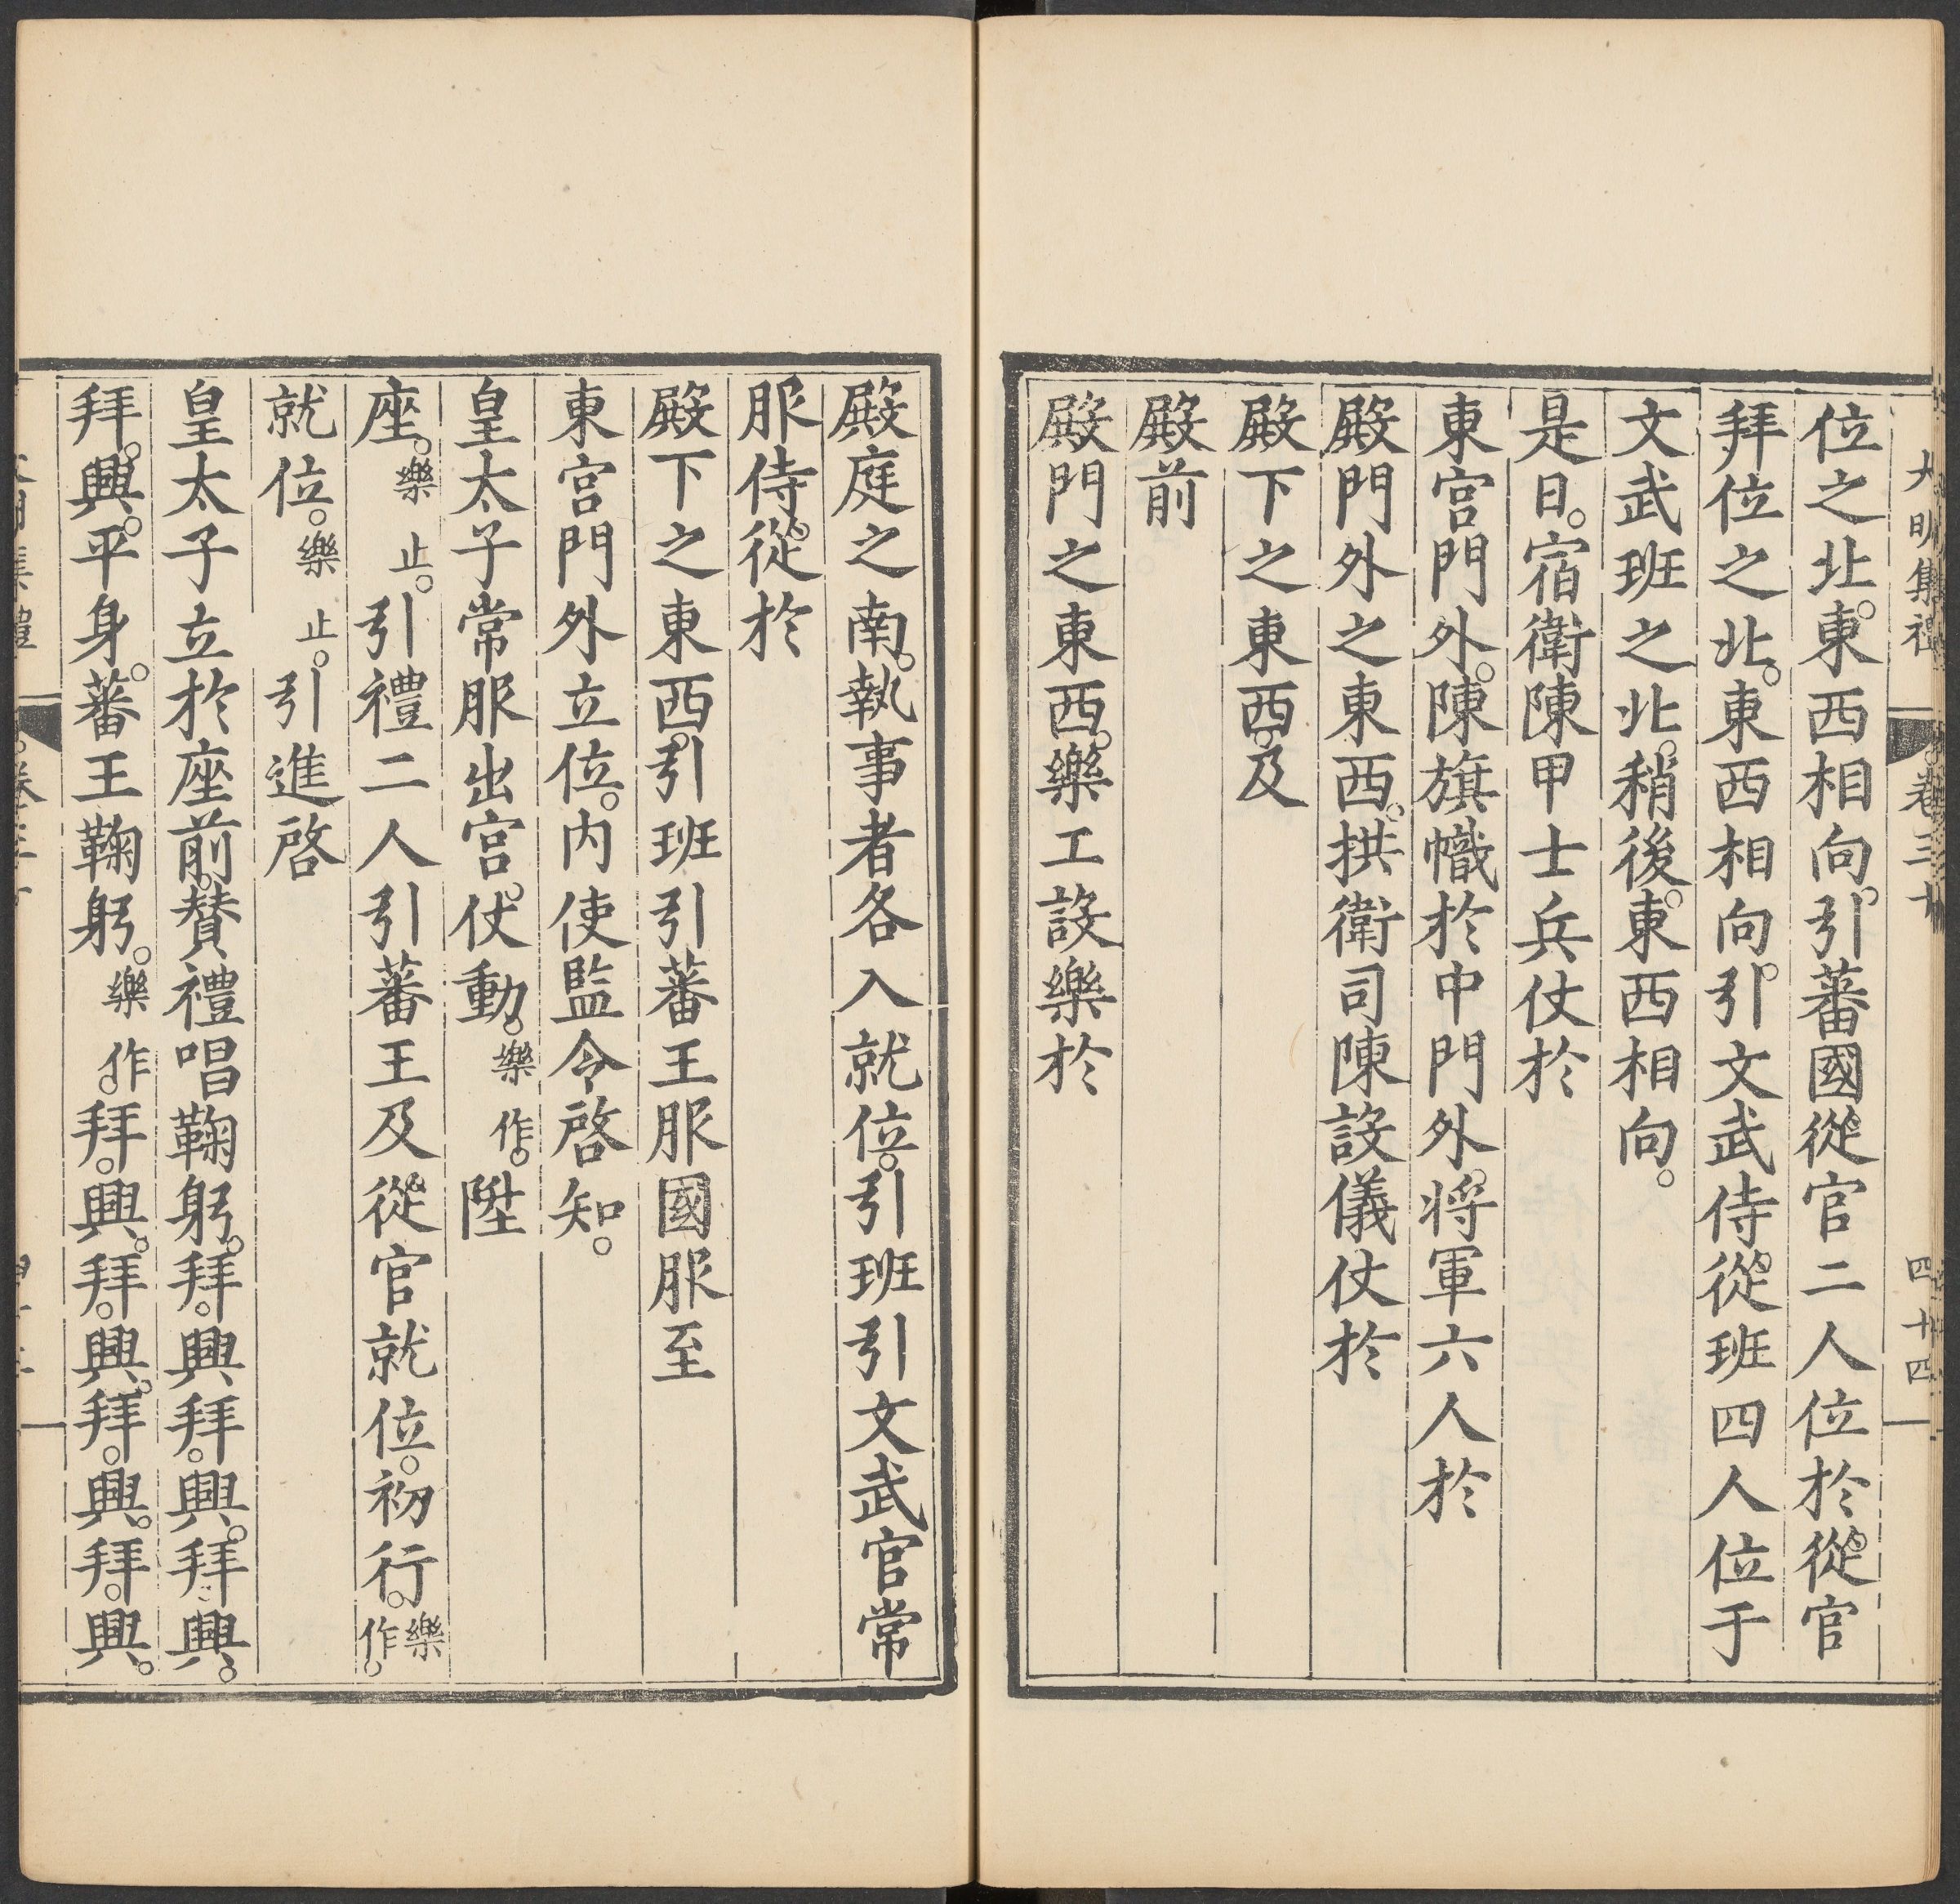 大明集禮 卷三十 四十四
位之北。東西相向。引蕃國從官二人位於從官
拜位之北。東西相向。引文武侍從班四人位于
文武班之北。稍後。東西相向。
是日。宿衛陳甲士兵仗於
東宮門外。陳旗幟於中門外。將軍六人於
殿門外之東西。拱衛司陳設儀仗於
殿下之東西。及
殿前
殿門之東西。樂工設樂於
殿庭之南。執事者各入就位。引班引文武官常
服侍從於
殿下之東西。引班引蕃王服國服至
東宮門外立位。內使監令啓知。
皇太子常服出宮。仗動。樂作。陞
座。樂止。引禮二人引蕃王及從官就位。初行。樂作。
就位。樂止。引進啓
皇太子立於座前。贊禮唱鞠躬。拜。興拜。興。拜。興。
拜。興。平身。蕃王鞠躬。樂作。拜。興。拜。興。拜。興。拜。興。